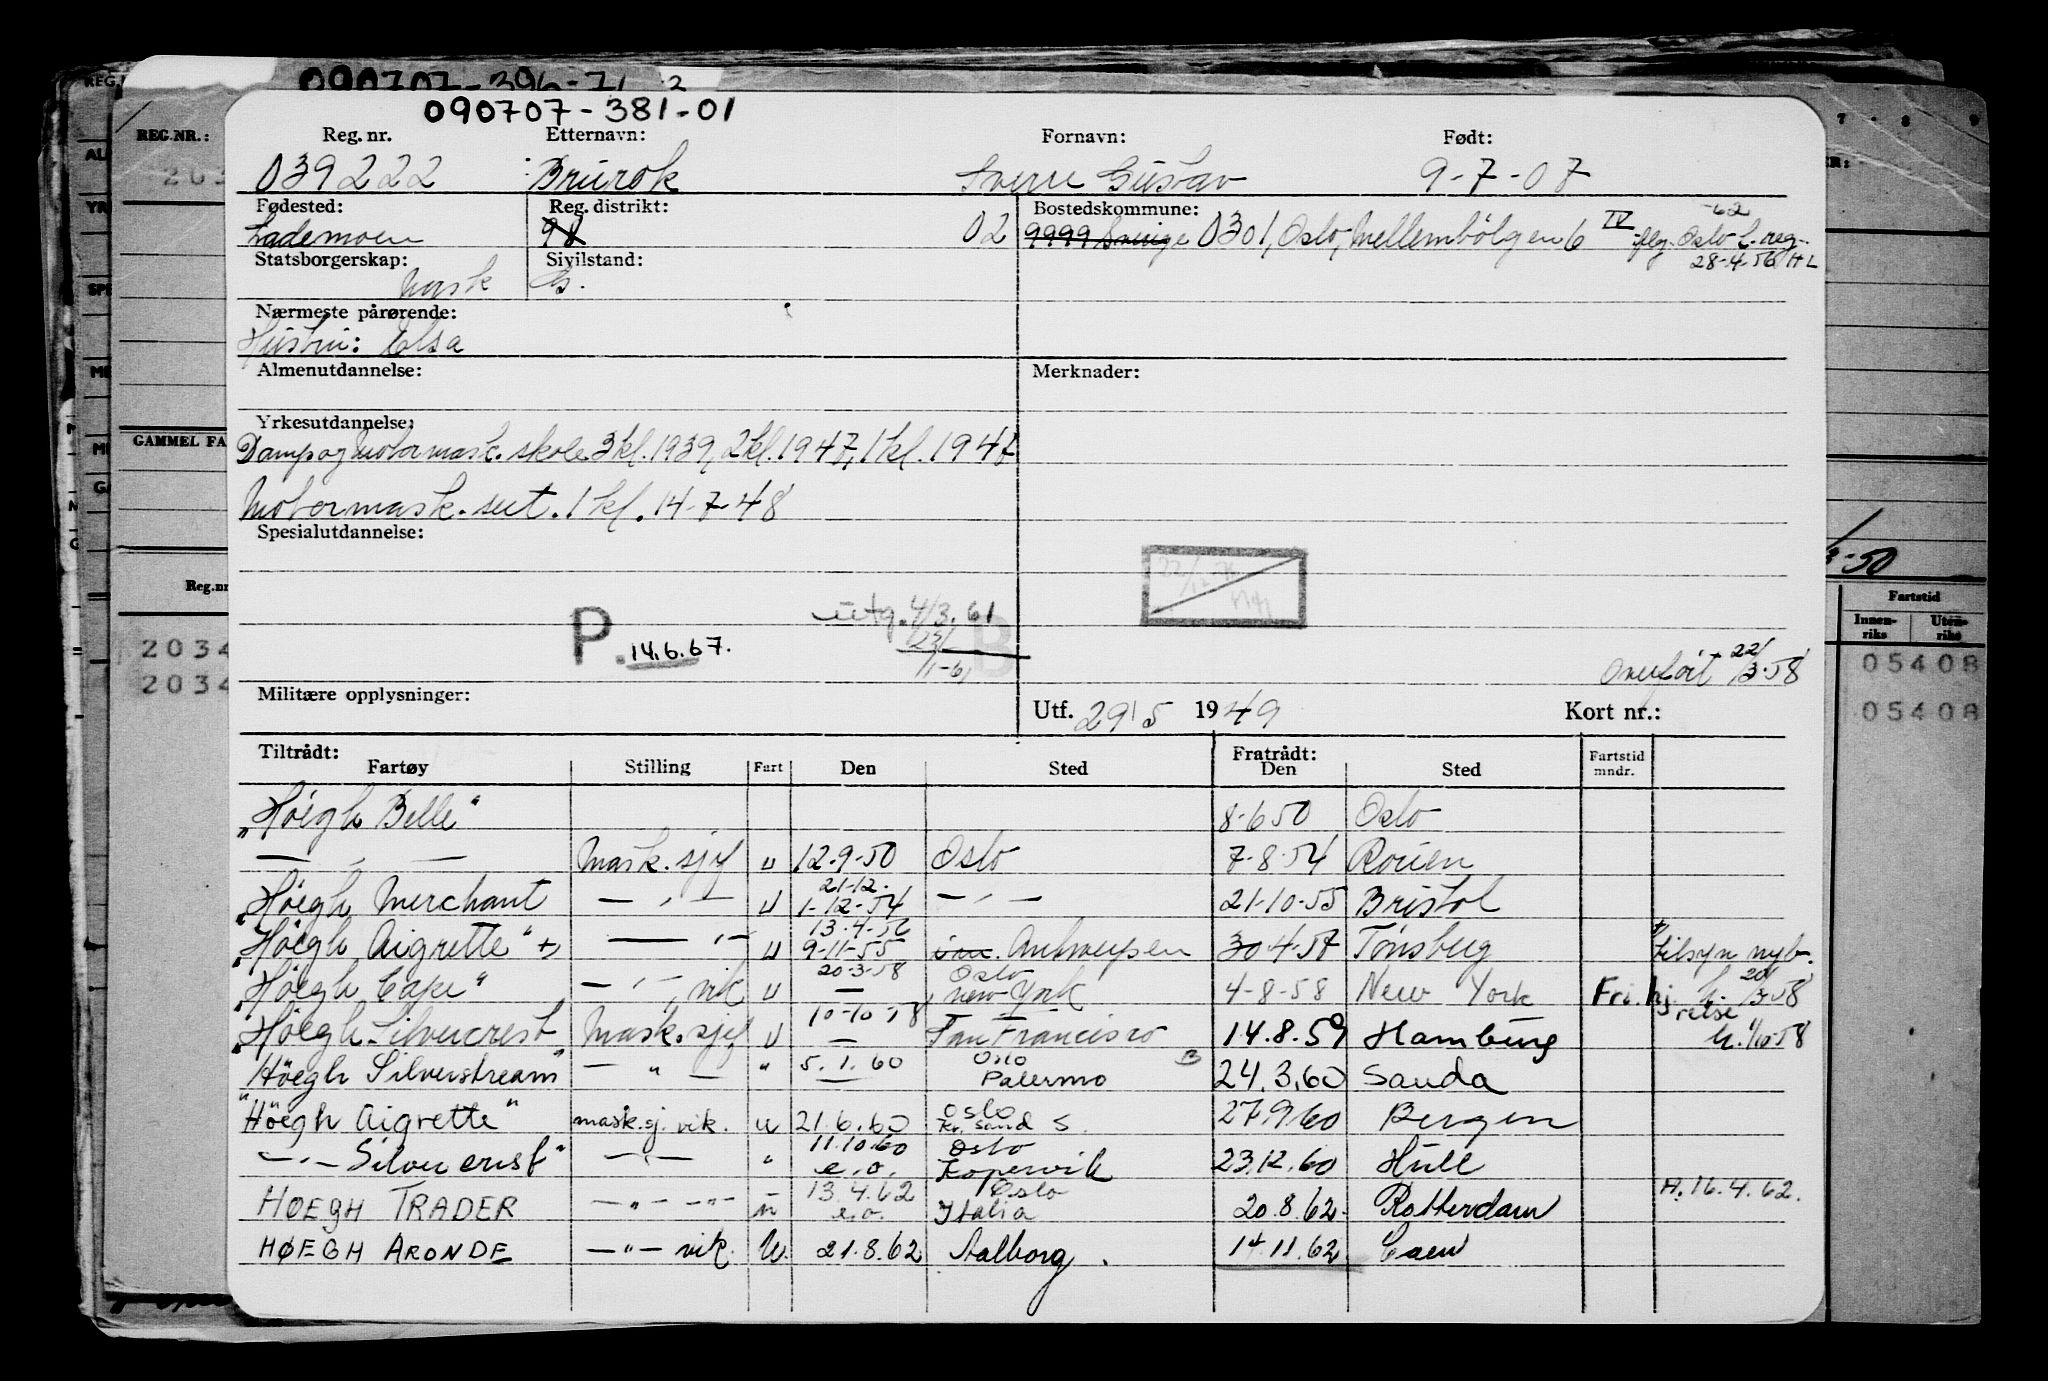 090707-396-71
090707-381-01
Reg. nr. Etternavn: Fornavn: Født:
039222 Brurok Sverre Gustav 9-7-07
Fødested: Reg. distrikt: Bostedskommune:
-62
Lademoen 98 02 9999 Sverige 0301, Oslo, Mellembölgen 6 IV flg. Oslo h. reg.
28-4-56 HL
Statsborgerskap: Sivilstand:
Norsk G.
Nærmeste pårørende:
Hustru: Elsa
Almenutdannelse: Merknader:
Yrkesutdannelse:
Damp og motormask. skole 3 kl. 1939, 2 kl. 1947, 1 kl. 1947
Motormask. sert. 1 kl. 14-7-48
Spesialutdannelse:
utg. 4/3. 61
P. 14.6.67. B
Overført 22/3-58
Militære opplysninger: Utf. 29/5 1949 Kort nr.:
Tiltrådt: Fratrådt:
Fartøy Stilling Fart Den Sted Den Sted Fartstid mndr.
"Höegh Belle" 8-6 50 Oslo
— " — Mask. sjef u 12-9-50 Oslo 7-8-54 Rouen
21-12-
"Höegh Merchant — " — u 1-12-54 — " — 21-10-55 Bristol
13-4-56
"Höegh Aigrette" +) — " — u 9-11-55 Antwerpen 30-4-57 Tönsberg +) tilsyn nyb.
20-3-58 Oslo
"Höegh Cape" — " — vik u — New York 4-8-58 New York Fri. hj. reise h. 20/3-58
10-10-58
"Höegh Silvercrest Mask. sjef u — San Francisco 14.8.59 Hamburg h. 1/10-58
5.1.60 Oslo
"Höegh Silverstream" — " — " — Palermo 24.3.60 Sauda
"Höegh Aigrette" mask. sj. vik. u 21.6.60 Oslo Kr. sand S. 27.9.60 Bergen
11.10.60 Oslo
— " — Silvercrest" — " — " e.o. Kopervik 23.12.60 Hull
13.4.62 Oslo H. 16.4.62.
HØEGH TRADER — " — " — u e.o. Italia 20.8.62. Rotterdam
HØEGH ARONDE — " — vik. U. 21.8.62 Aalborg. 14.11.62 Caen
REG. NR.:
GAMMEL FA
Reg.nr
2034
2034
3-50
Fartstid
Innen-riks Uten-riks
05408
05408